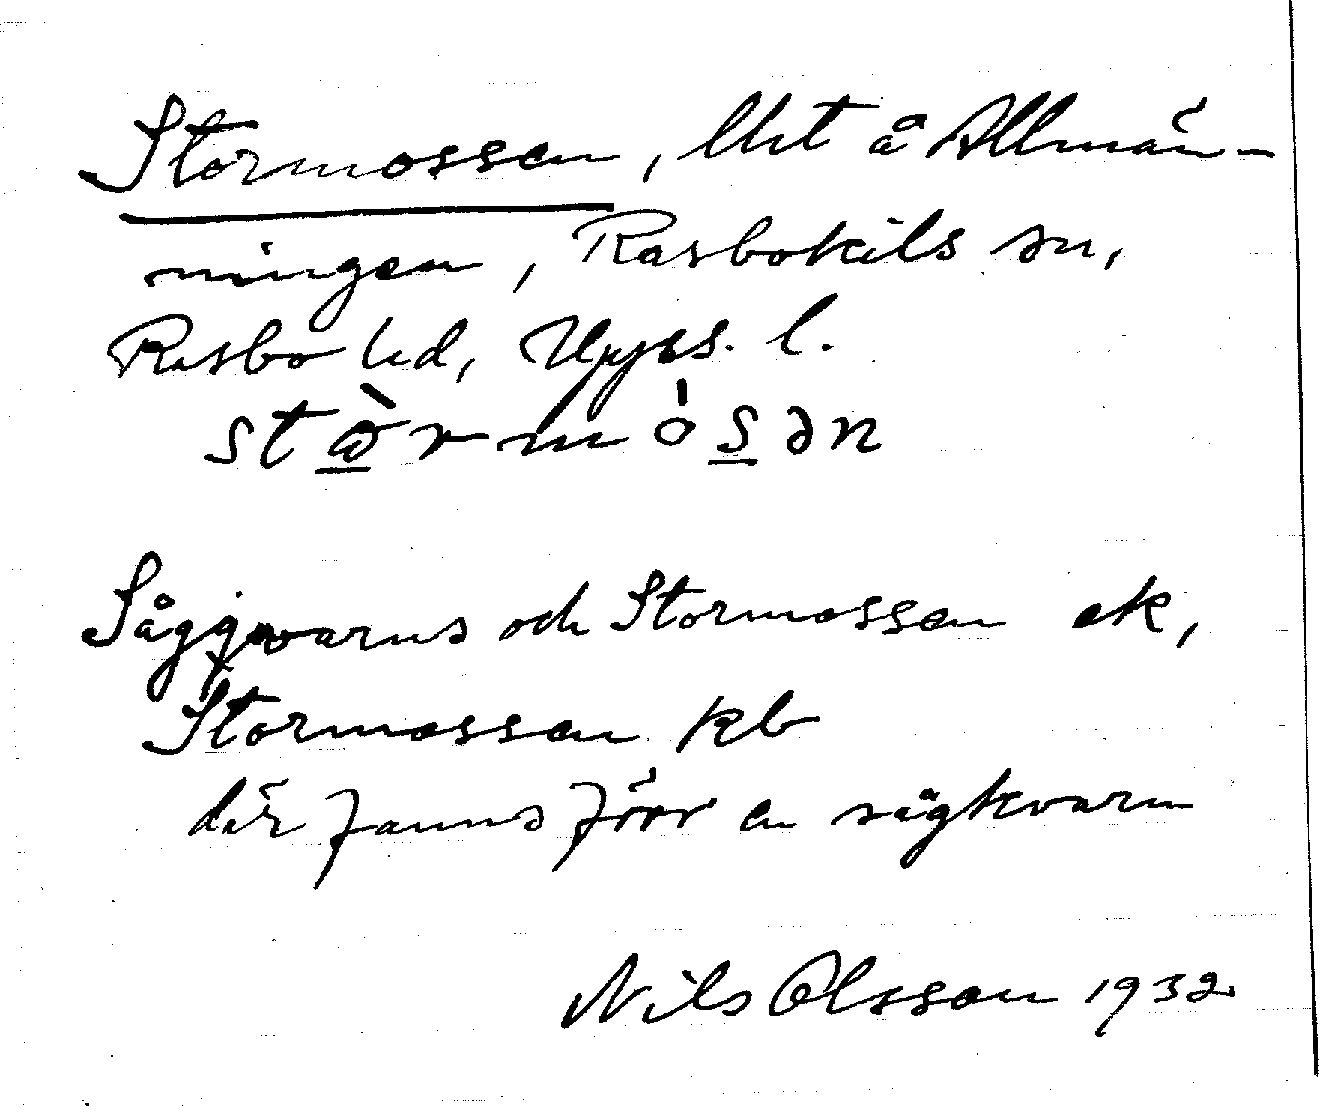 Stormossen, Utst å Allmän-
ningen, Rasbokils sn,
Rasbo hd, Upps. l.
stɷ̀rmósən
Såggvarns och Stormossen ek,
Stormossen kb
där fanns förr en sågkvarn
Nils Olsson 1932